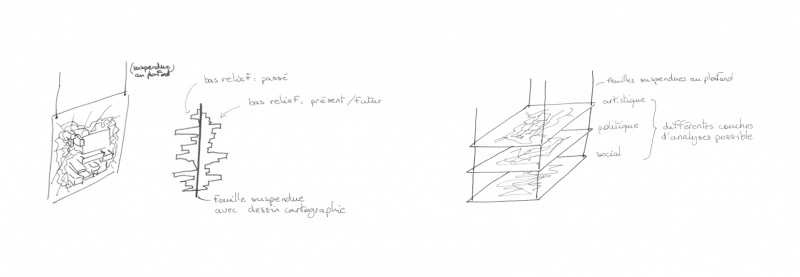 (suspendue)
au plafond
bas relief : passé
bas relief : présent/futur
feuille suspendue
avec dessin cartographie
feuilles suspendues au plafond
artistique
politique
social
différentes couches
d'analyses possible